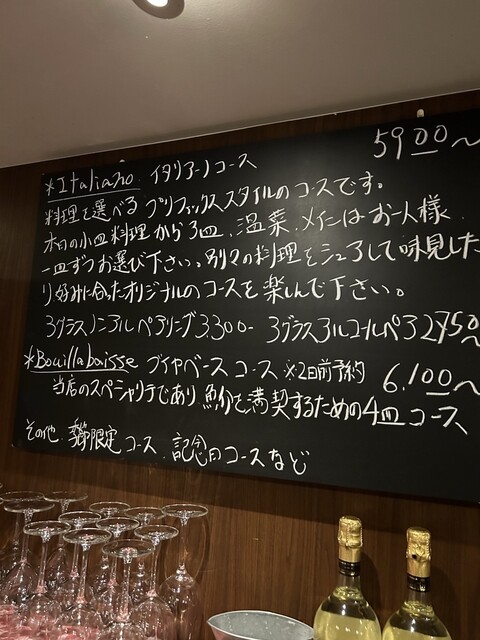 *Italiano イタリアーノコース 5900〜
料理を選べる プリフィックススタイルのコースです。
本日の小皿料理から3皿、温菜、メインはお一人様
一皿ずつお選び下さい。別々の料理をシェアして味見した
り好みに合ったオリジナルのコースを楽しんで下さい。
3グラスノンアルペアリング3.300- 3グラスアルコールペア2750〜
*Bouillabaisse ブイヤベース コース ※2日前予約 6.100〜
当店のスペシャリテであり、魚介を満喫するための4皿コース
その他 季節限定コース、記念日コースなど